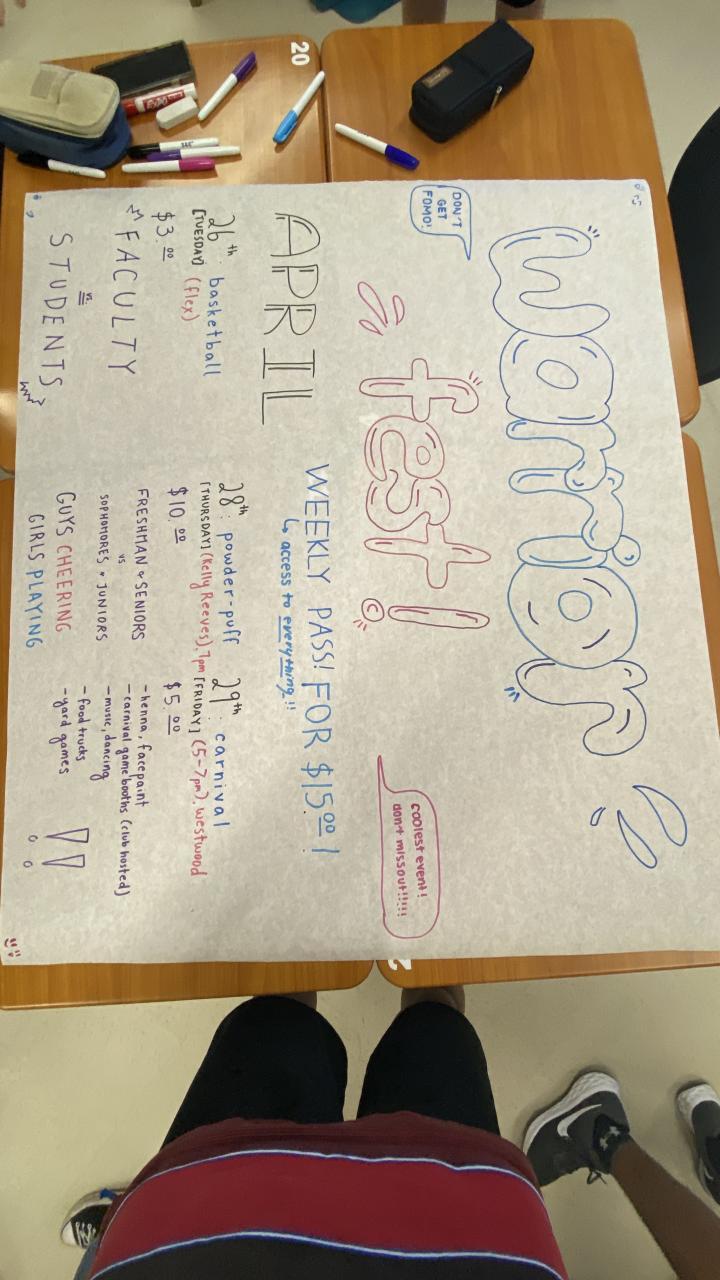 warrior
DON'T
GET
FOMO!
fest!
coolest event!
don't miss out!!!!!
APRIL
WEEKLY PASS! FOR $15.00!
↳ access to everything!!
26th: basketball
[TUESDAY] (flex)
$3.00
FACULTY
vs.
STUDENTS
28th: powder-puff
[THURSDAY] (Kelly Reeves), 7pm
$10.00
FRESHMAN & SENIORS
vs
SOPHOMORES & JUNIORS
GUYS CHEERING
GIRLS PLAYING
29th: carnival
[FRIDAY] (5-7pm), westwood
$5.00
- henna, facepaint
- carnival game booths (club hosted)
- music, dancing
- food trucks
- yard games
!!
20